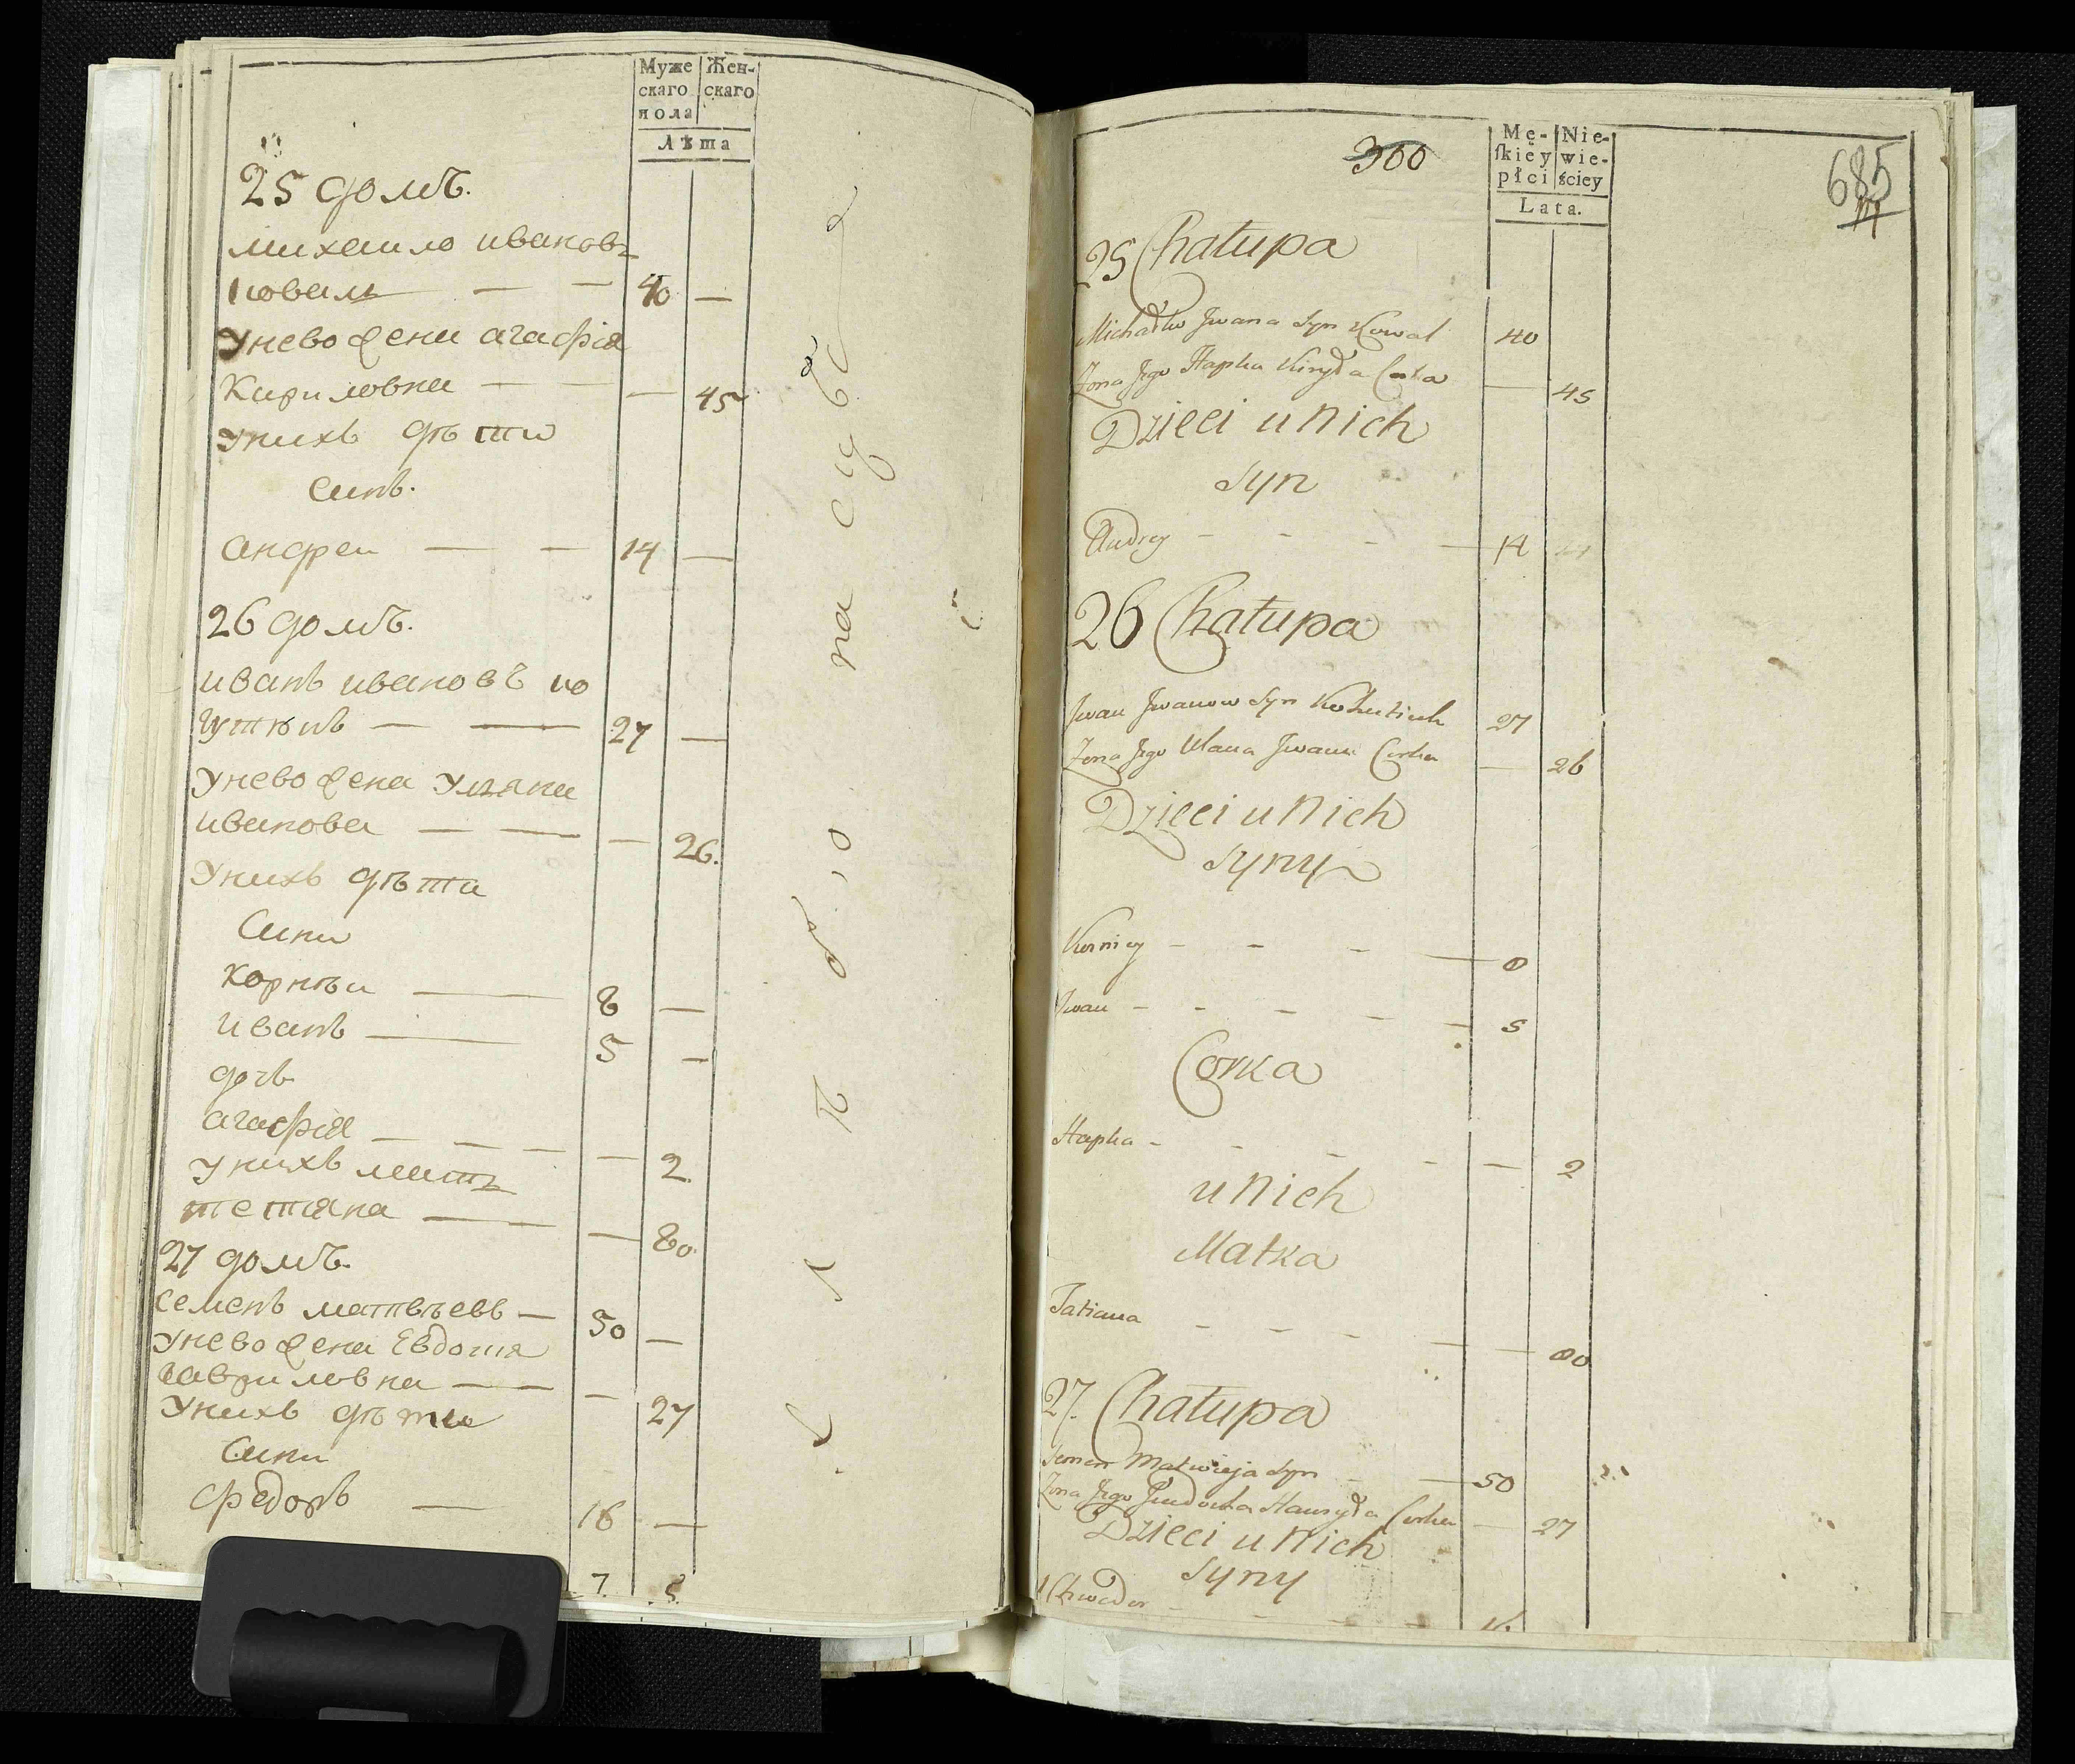 Муже
скаго
пола
Жен-
скаго
Лѣта
25 домъ.
михаило ивановъ
коваль — — 40 —
унево жена агафия
Кириловна — — — 45
унихъ дѣти
синъ.
андреи — — 14 —
26 домъ.
иванъ ивановъ ко
— — 27 —
унево жена уляна
иванова — — — 26.
унихъ дѣти
сини
корнѣи — 8 —
иванъ — 5 —
дочь
агафия — — — — 2.
унихъ мать
тетияна — — 80.
27 домъ.
семенъ матвѣевъ — 50 —
унево жена Евдокия
гавриловна — — — 27
унихъ дѣти
сини
федоръ — 16 —
7. 5.
300
685
Mę-
ſkiey
płci
Nie-
wie-
ściey
Lata.
25 Chałupa
Michałko Jwana Syn Kowal 40
Żona Jego Hapka Kiryła Corka — 45
Dzieci u Nich
Syn
Andrey - - - — 14
26 Chałupa
Jwan Jwanow Syn 27
Żona Jego Ulana Jwana Corka — 26
Dzieci u Nich
Syny
Korniey - - - — 8
Jwan - - - - - 5
Corka
Hapka - - - - — 2
u Nich
Matka
Tatiana - - - — — 80
27. Chałupa
Semen Matwieja Syn - — 50
Żona Jego Jeudocha Hawryła Corka — 27
Dzieci u Nich
Syny
Chwedor - - - - 16